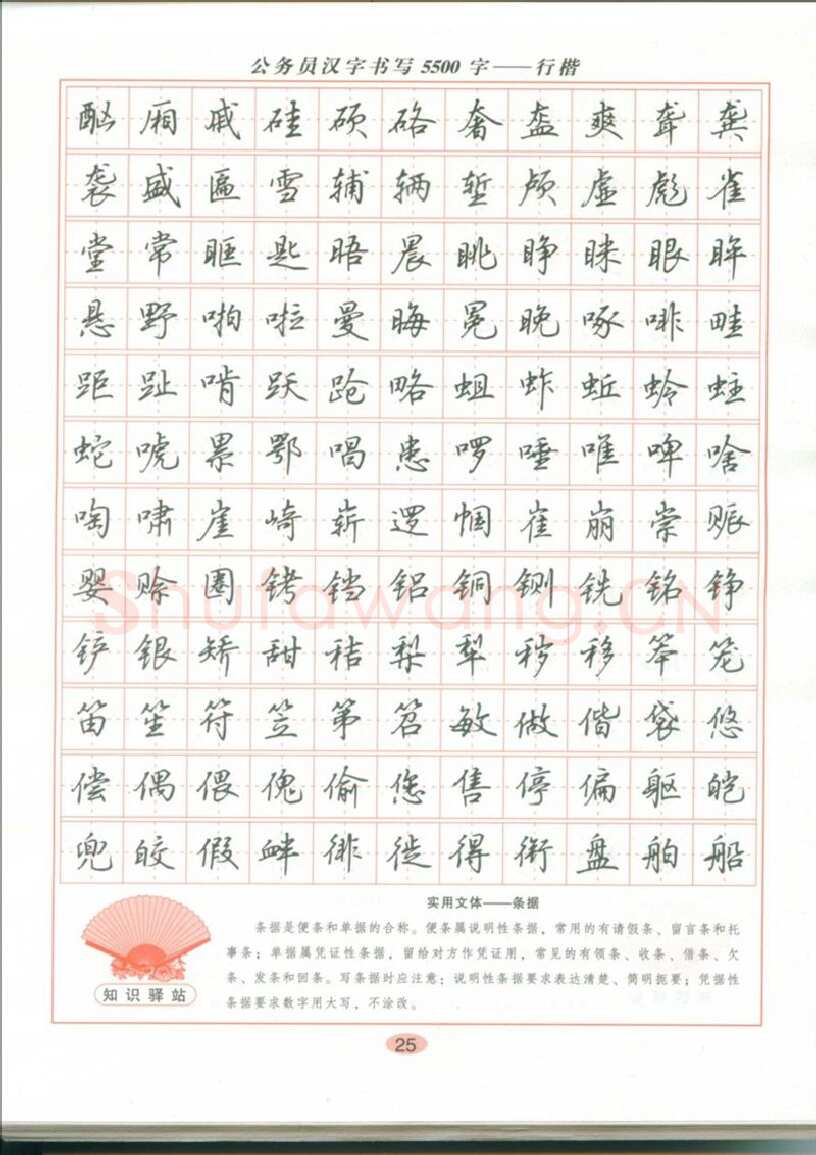 公务员汉字书写5500字——行楷
酗厢戚硅硕硌奢盔爽聋龚
袭盛匾雪辅辆堑颅虚彪雀
堂常眶匙晤晨眺睁眯眼眸
悬野啪啦曼晦冕晚啄啡畦
距趾啃跃跄略蛆蚱蚯蛉蛀
蛇唬累鄂唱患啰唾唯啤啥
啕啸崖崎崭逻帼崔崩崇赈
婴赊圈铐铛铝铜铡铣铭铮
铲银矫甜秸梨犁秽移笨笼
笛笙符笠第笤敏做偕袋悠
偿偶偎傀偷您售停偏躯皑
兜皎假衅徘徙得衔盘舶船
实用文体——条据
条据是便条和单据的合称。便条属说明性条据，常用的有请假条、留言条和托
事条；单据属凭证性条据，留给对方作凭证用，常见的有领条、收条、借条、欠
条、发条和回条。写条据时应注意：说明性条据要求表达清楚、简明扼要；凭据性
条据要求数字用大写，不涂改。
知识驿站
25
Shufawang.CN